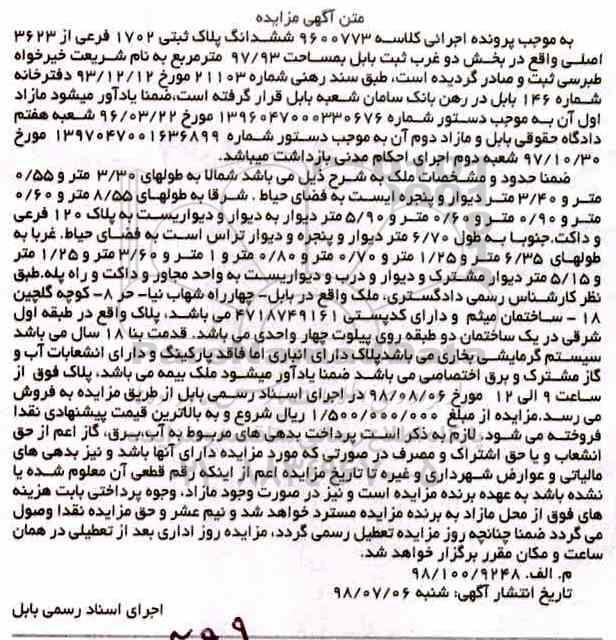 متن آگهی مزایده
به موجب پرونده اجرائی کلاسه ۹۶۰۰۷۷۳ ششدانگ پلاک ثبتی ۱۷۰۲ فرعی از ۳۶۲۳
اصلی واقع در بخش دو غرب ثبت بابل بمساحت ۹۷/۹۳ مترمربع به نام شریعت خیرخواه
طبرسی ثبت و صادر گردیده است، طبق سند رهنی شماره ۲۱۱۰۳ مورخ ۹۳/۱۲/۱۲ دفترخانه
شماره ۱۴۶ بابل در رهن بانک سامان شعبه بابل قرار گرفته است،ضمنا یادآور میشود مازاد
اول آن بـه موجب دستور شماره ۱۳۹۶۰۴۷۰۰۰۳۳۰۶۷۶ مورخ ۹۶/۰۳/۲۲ شعبه هفتم
دادگاه حقوقی بابل و مازاد دوم آن به موجب دستـور شماره ۱۳۹۷۰۴۷۰۰۱۶۳۶۸۹۹ مورخ
۹۷/۱۰/۳۰ شعبه دوم اجرای احکام مدنی بازداشت میباشد.
ضمنا حدود و مشخصات ملک به شرح ذیل می باشد شمالا به طولهای ۳/۳۰ متر و ۰/۵۵
متـر و ۳/۴۰ متـر دیوار و پنجره ایست به فضای حیاط . شرقا به طولهای ۸/۵۵ متر و ۰/۶۰
متر و ۰/۹۰ متـر و ۰/۶۰ متـر و ۵/۹۰ متر دیوار به دیوار و دیواریست به پلاک ۱۲۰ فرعی
و داکت.جنوبـا بـه طول ۶/۷۰ متر دیوار و پنجره و دیوار تراس است به فضـای حیاط. غربا به
طولهای ۶/۳۵ متـر و ۱/۲۵ متر و ۰/۷۰ متر و ۰/۸۰ متر و ۱ متر و ۳/۶۰ متر و ۱/۲۵ متر
و ۵/۱۵ متر دیوار مشترک و دیوار و درب و دیواریسـت به واحد مجاور و داکت و راه پله.طبق
نظر کارشناس رسمی دادگستری، ملک واقع در بابل- چهارراه شهاب نیا- حر ۸- کوچه گلچین
۱۸ - ساختمان میثم و دارای کدپستی ۴۷۱۸۷۴۹۱۶۱ می باشـد، پلاک واقع در طبقه اول
شرقی در یک ساختمان دو طبقه روی پیلوت چهار واحدی می باشد. قدمت بنا ۱۸ سال می باشد
سیسـتم گرمایشـی بخاری می باشدپلاک دارای انباری اما فاقد پارکینگ و دارای انشعابات آب و
گاز مشـترک و برق اختصاصی می باشـد ضمنا یادآور میشود ملک بیمه می باشد، پلاک فوق از
ساعت ۹ الی ۱۲ مورخ ۹۸/۰۸/۰۶ در اجرای اسـناد رسـمی بابل از طریق مزایده به فروش
می رسـد.مزایده از مبلغ ۱/۵۰۰/۰۰۰/۰۰۰ ریال شروع و به بالاترین قیمت پیشنهادی نقدا
فروخته می شـود، لازم به ذکر اسـت پرداخت بدهی های مربوط به آب،برق، گاز اعم از حق
انشعاب و یا حق اشتراک و مصرف در صورتی که مورد مزایده دارای آنها باشد و نیز بدهی های
مالیاتی و عوارض شهرداری و غیره تا تاریخ مزایده اعم از اینکه رقم قطعی آن معلوم شده یا
نشده باشد به عهده برنده مزایده است و نیز در صورت وجود مازاد، وجوه پرداختی بابت هزینه
های فوق از محل مازاد به برنده مزایده مسترد خواهد شد و نیم عشر و حق مزایده نقدا وصول
می گردد ضمنا چنانچه روز مزایده تعطیل رسمی گردد، مزایده روز اداری بعد از تعطیلی در همان
ساعت و مکان مقرر برگزار خواهد شد.
م. الف. ۹۸/۱۰۰/۹۲۴۸
تاریخ انتشار آگهی: شنبه ۹۸/۰۷/۰۶
اجرای اسناد رسمی بابل